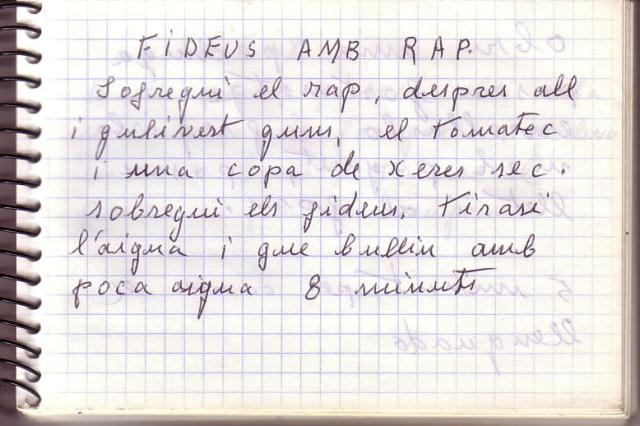 FIDEUS AMB RAP.
Sofregui el rap, despres all
i julivert junts, el tomatec
i una copa de xeres sec.
sobregui els fideus. Tirasi
l'aigua i que bullin amb
poca aigua 8 minuts